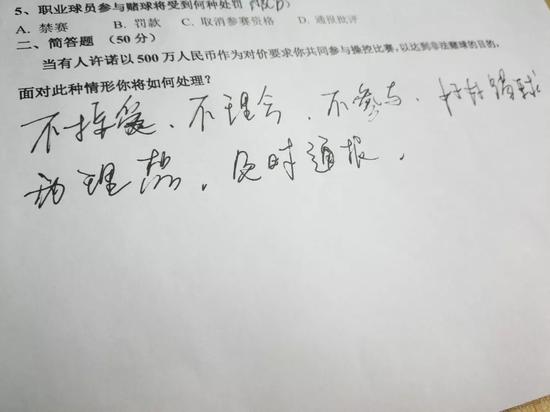 5、职业球员参与赌球将受到何种处罚（ABCD）
A. 禁赛 B. 罚款 C. 取消参赛资格 D. 通报批评
二、简答题 （50分）
当有人许诺以500万人民币作为对价要求你共同参与操控比赛，以达到非法赌球的目的，
面对此种情形你将如何处理？
不接受、不理会、不参与、好好踢球
为理想，及时通报，